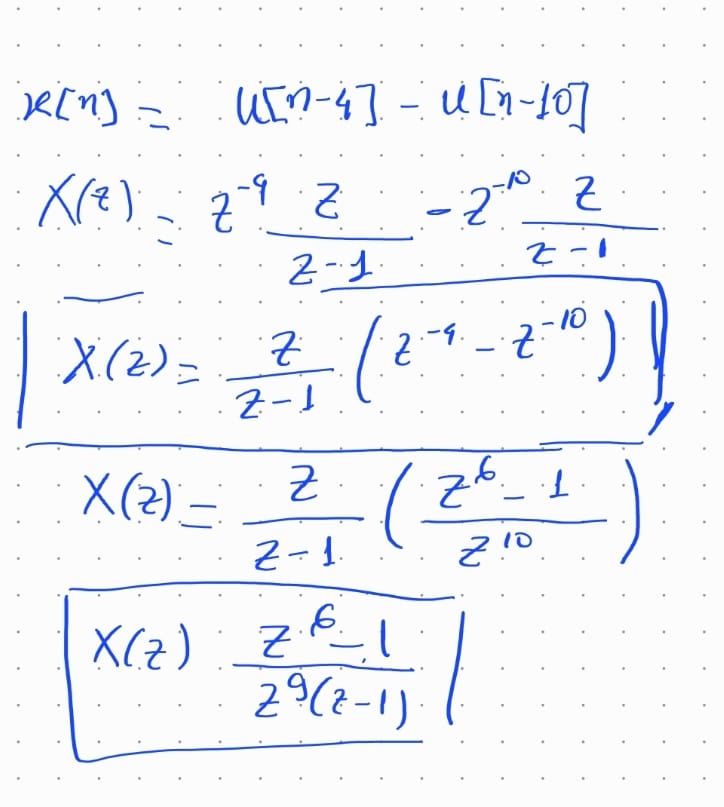 x[n] = u[n-4] - u[n-10]
X(z) = z^-4 z/(z-1) - z^-10 z/(z-1)
X(z) = z/(z-1) (z^-4 - z^-10)
X(z) = z/(z-1) ((z^6 - 1)/z^10)
X(z) (z^6 - 1)/(z^9(z-1))